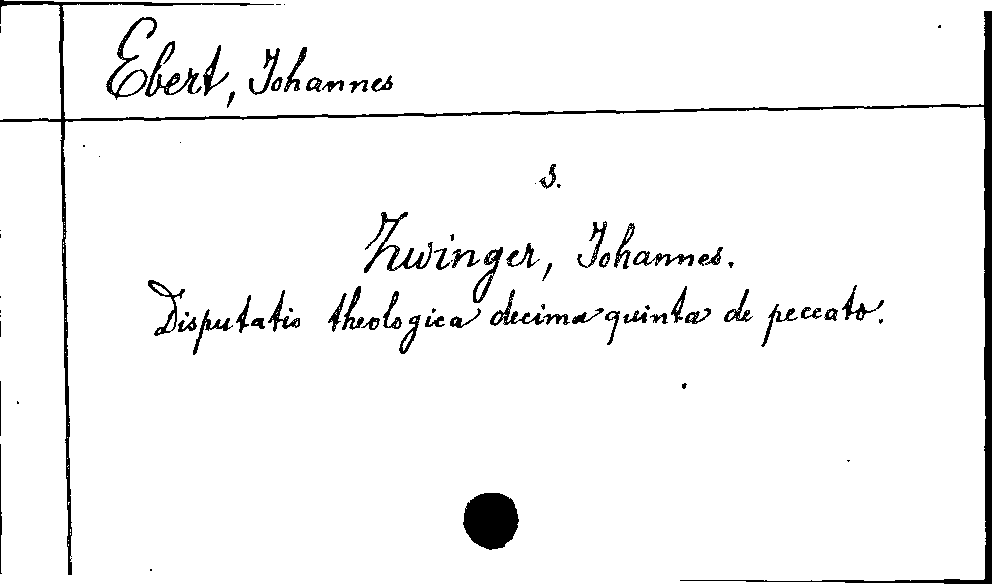 Ebert, Johannes
s.
Zwinger, Johannes.
Disputatio theologica decima quinta de peccato.